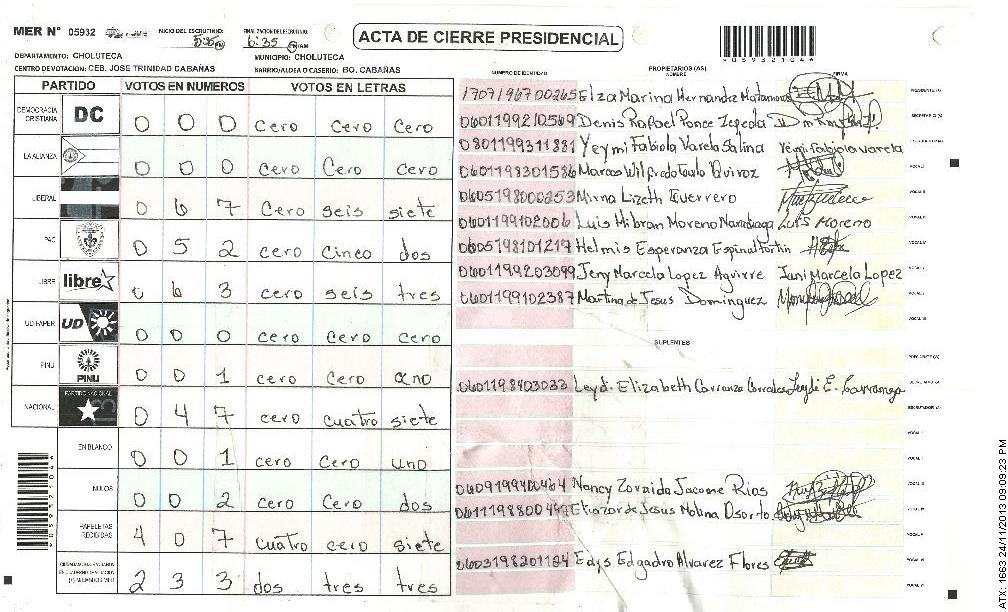 MER N° 05932
INICIO DEL ESCRUTINIO: 5:35
FINALIZACION DEL ESCRUTINIO: 6:35
ACTA DE CIERRE PRESIDENCIAL
*05932104*
DEPARTAMENTO: CHOLUTECA
MUNICIPIO: CHOLUTECA
CENTRO DE VOTACION: CEB. JOSE TRINIDAD CABAÑAS
BARRIO/ALDEA O CASERIO: BO. CABAÑAS
PARTIDO VOTOS EN NUMEROS VOTOS EN LETRAS
DEMOCRACIA CRISTIANA DC 0 0 0 cero cero cero
LA ALIANZA 0 0 0 cero cero cero
LIBERAL 0 6 7 cero seis siete
PAC 0 5 2 cero cinco dos
LIBRE libre 0 6 3 cero seis tres
UD-FAPER UD 0 0 0 cero cero cero
PINU PINU 0 0 1 cero cero uno
NACIONAL PARTIDO NACIONAL 0 4 7 cero cuatro siete
EN BLANCO 0 0 1 cero cero uno
NULOS 0 0 2 cero cero dos
PAPELETAS RECIBIDAS 4 0 7 cuatro cero siete
2 3 3 dos tres tres
*05932104*
NUMERO DE IDENTIDAD PROPIETARIOS (AS) NOMBRE FIRMA
1707196700265 Elza Marina Hernandez Matamoros
0601199210569 Denis Rafael Ponce Zepeda
0801199311881 Yeymi Fabiola Varela Salina Yeymi Fabiola Varela
0601198301586 Marcos Wilfredo Tulo Quiroz
0605198000253 Mirna Lizeth Guerrero
0601199102006 Luis Hibran Moreno Luis Moreno
0605198101217 Helmis Esperanza Espinal
0601199203099 Jeny Marcela Lopez Aguirre Jani Marcela Lopez
0601199102387 Martina de Jesus Dominguez
SUPLENTES
0601198403033 Leydi Elizabeth Carranza Corrales Leydi E. Carranza
0609199400464 Nancy Zoraida Jacome Rios
Eliazar de Jesus Molina Osorto
0603198201124 Edys Edgadro Alvarez Flores
ATX: 1663 24/11/2013 09:09:23 PM